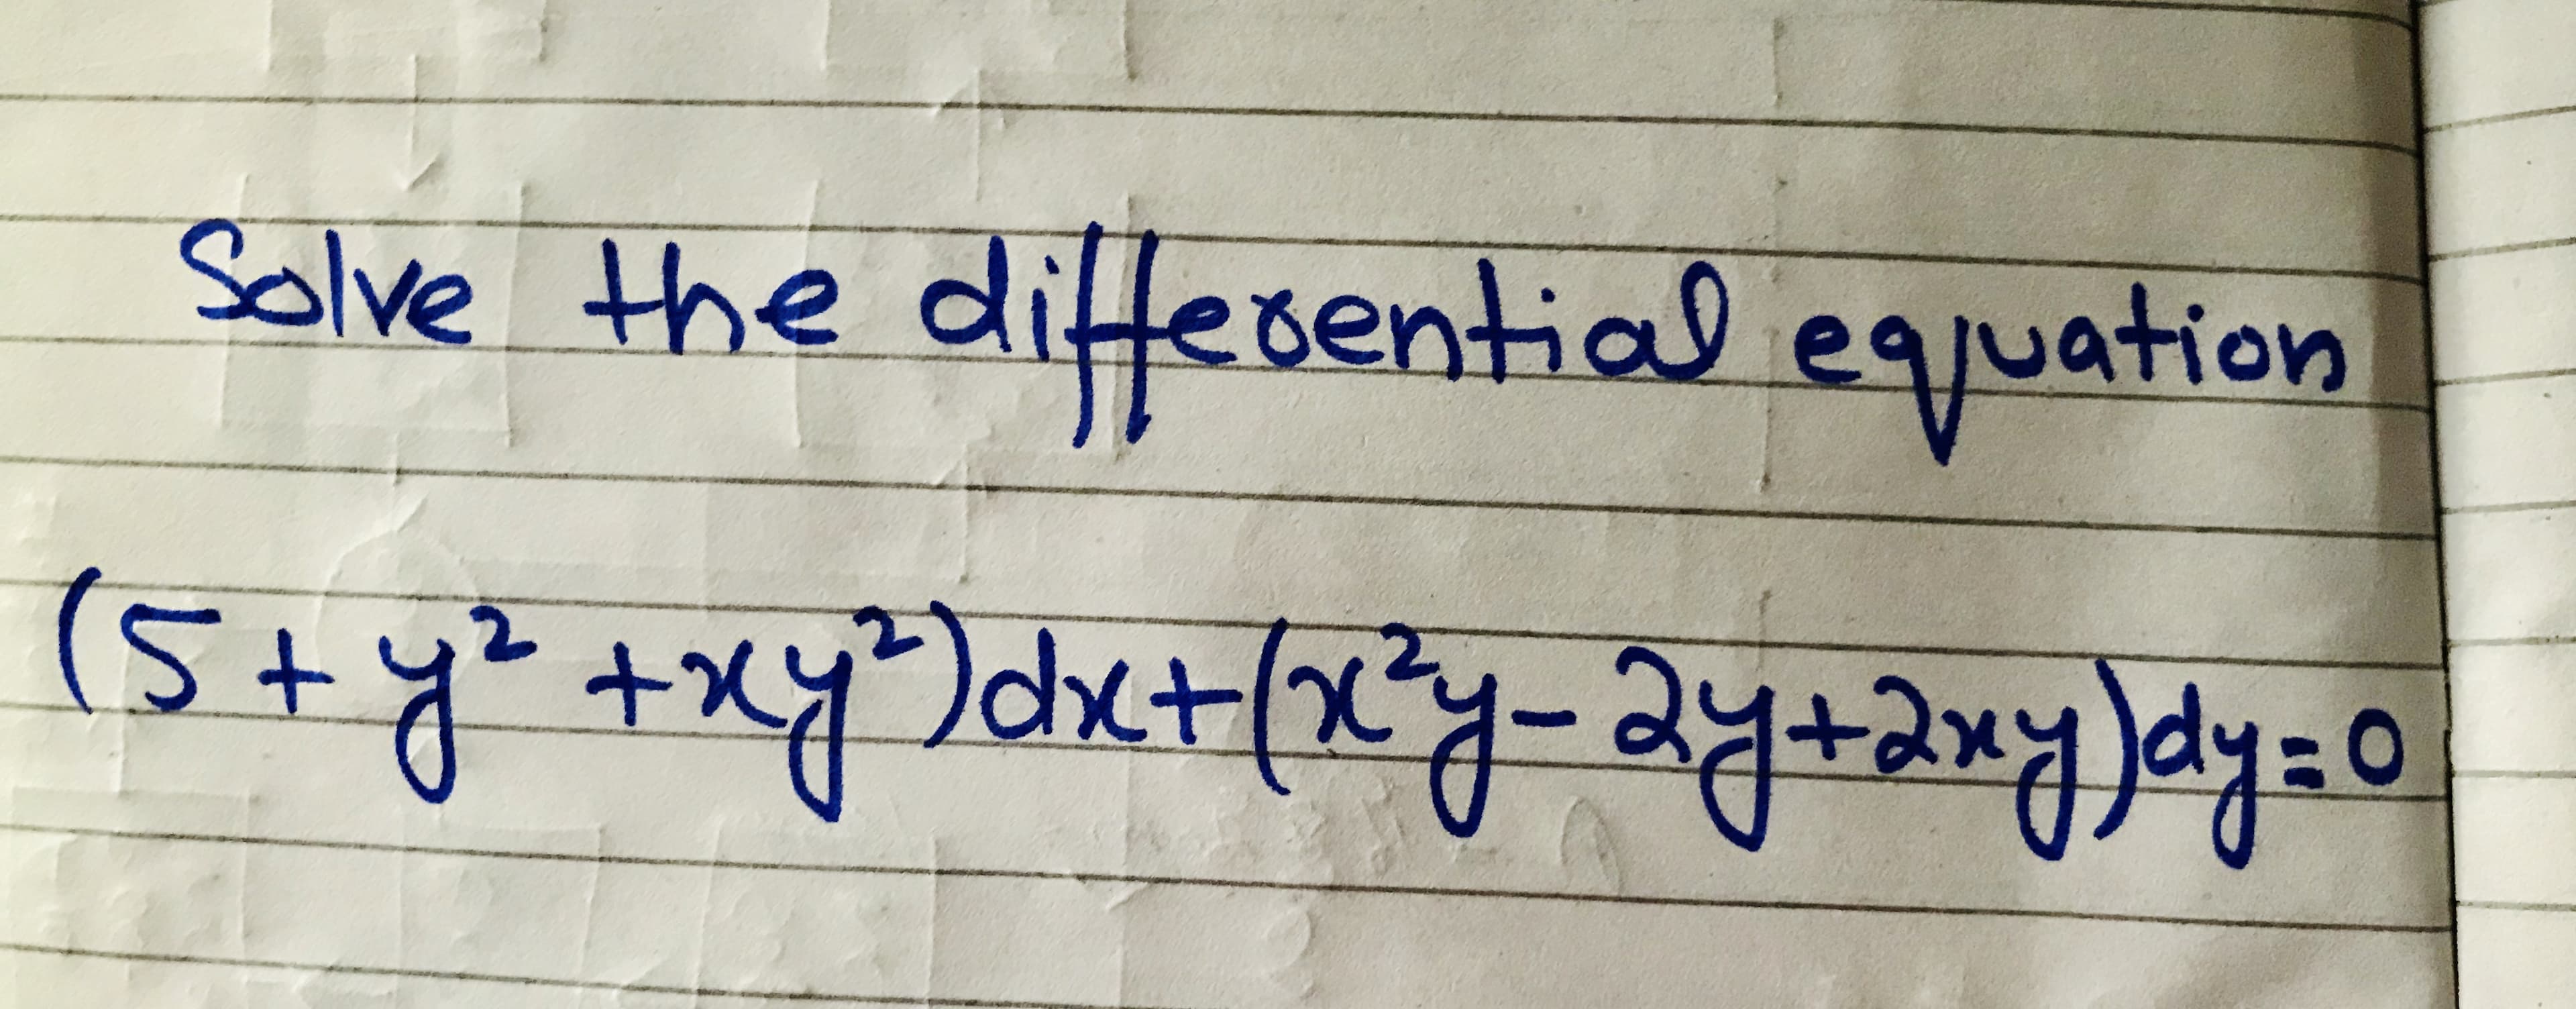 Solve the differential equation
(5 + y² + xy²)dx + (x²y - 2y + 2xy)dy = 0